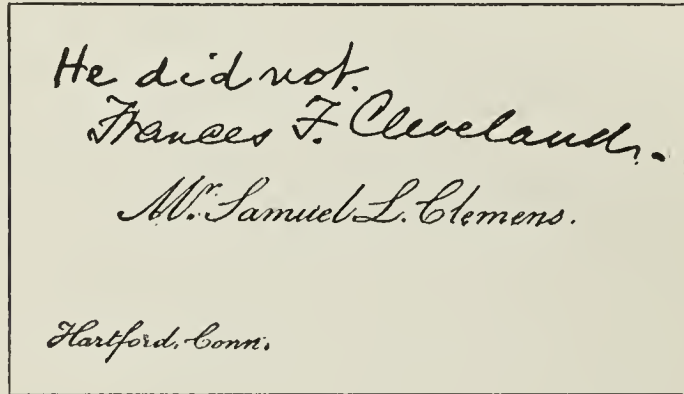 He did not.
Frances F. Cleveland.
Mr. Samuel L. Clemens.
Hartford, Conn.